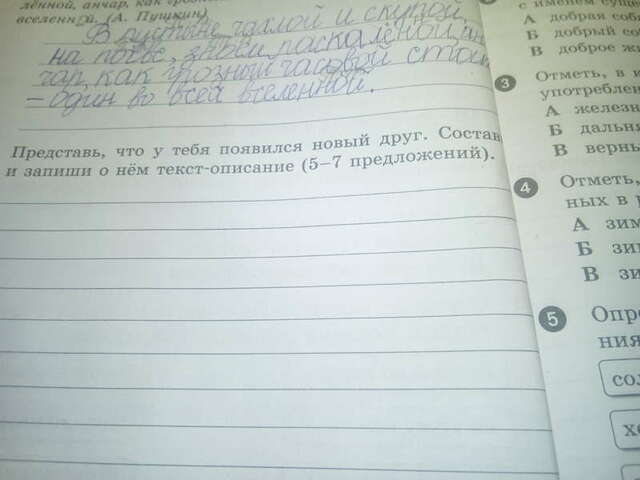 лённой, анчар, как грозн
вселенной. (А. Пушкин)
В пустыне чахлой и скупой,
на почве, зноем раскалёной, ан
чар, как грозный часовой стои
– один во всей вселенной.
Представь, что у тебя появился новый друг. Состав
и запиши о нём текст-описание (5–7 предложений).
с именем суще
А добрая соб
Б добрый со
В доброе жи
3 Отметь, в к
употреблен
А железн
Б дальня
В верны
4 Отметь,
ных в р
А зим
Б зи
В зи
5 Опре
ния
сол
хо